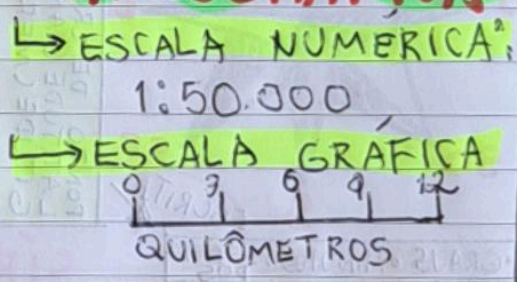 ↳ ESCALA NUMÉRICA:
1:50.000
↳ ESCALA GRÁFICA
0 3 6 9 12
QUILÔMETROS